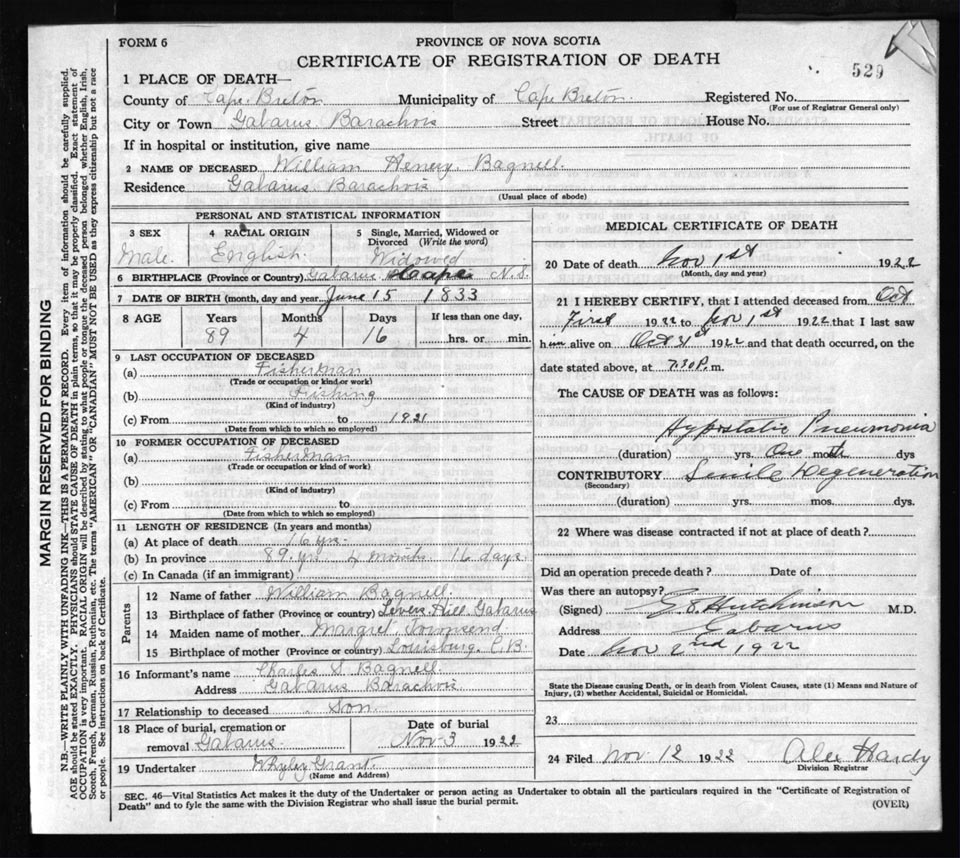 FORM 6
PROVINCE OF NOVA SCOTIA
CERTIFICATE OF REGISTRATION OF DEATH
529
1 PLACE OF DEATH—
County of Cape Breton Municipality of Cape Breton Registered No.
(For use of Registrar General only)
City or Town Gabarus Barachois Street House No.
If in hospital or institution, give name
2 NAME OF DECEASED William Henery Bagnell.
Residence Gabarus Barachois
(Usual place of abode)
PERSONAL AND STATISTICAL INFORMATION
3 SEX 4 RACIAL ORIGIN 5 Single, Married, Widowed or Divorced (Write the word)
Male. English. Widowed
6 BIRTHPLACE (Province or Country) Gabarus Cape N.S.
7 DATE OF BIRTH (month, day and year) June 15 1833
8 AGE Years Months Days If less than one day,
89 4 16 hrs. or min.
9 LAST OCCUPATION OF DECEASED
(a) Fisherman
(Trade or occupation or kind or work)
(b) Fishing
(Kind of industry)
(c) From to 1921
(Date from which to which so employed)
10 FORMER OCCUPATION OF DECEASED
(a) Fisherman
(Trade or occupation or kind of work)
(b)
(Kind of industry)
(c) From to
(Date from which to which so employed)
11 LENGTH OF RESIDENCE (In years and months)
(a) At place of death 76 yrs.
(b) In province 89. yrs 4 month 16 days.
(c) In Canada (if an immigrant)
Parents
12 Name of father William Bagnell.
13 Birthplace of father (Province or country) Hill Gabarus
14 Maiden name of mother Margret Townsend
15 Birthplace of mother (Province or country) Louisburg. C.B.
16 Informant's name Charles S. Bagnell.
Address Gabarus Barachois
17 Relationship to deceased Son
18 Place of burial, cremation or removal Gabarus. Date of burial Nov 3 1922
19 Undertaker Whyley Grant
(Name and Address)
MEDICAL CERTIFICATE OF DEATH
20 Date of death Nov 1st 1922
(Month, day and year)
21 I HEREBY CERTIFY, that I attended deceased from Oct
First 1922 to Nov 1st 1922 that I last saw
him alive on Oct 31st 1922 and that death occurred, on the
date stated above, at 7.30 P. m.
The CAUSE OF DEATH was as follows:
Hypostatic Pneumonia
(duration) yrs. One month dys
CONTRIBUTORY Senile Degeneration
(Secondary)
(duration) yrs. mos. dys.
22 Where was disease contracted if not at place of death?
Did an operation precede death? Date of
Was there an autopsy?
(Signed) Hutchinson M.D.
Address Gabarus
Date Nov 2nd 1922
State the Disease causing Death, or in death from Violent Causes, state (1) Means and Nature of Injury, (2) whether Accidental, Suicidal or Homicidal.
23
24 Filed Nov 12 1922 Alex Hardy
Division Registrar
SEC. 46—Vital Statistics Act makes it the duty of the Undertaker or person acting as Undertaker to obtain all the particulars required in the "Certificate of Registration of
Death" and to fyle the same with the Division Registrar who shall issue the burial permit.
(OVER)
MARGIN RESERVED FOR BINDING
N.B.—WRITE PLAINLY WITH UNFADING INK—THIS IS A PERMANENT RECORD. Every item of information should be carefully supplied.
AGE should be stated EXACTLY. PHYSICIANS should STATE CAUSE OF DEATH in plain terms, so that it may be properly classified. Exact statement of
OCCUPATION is very important. RACIAL ORIGIN will be described by stating to what people or tongue the deceased person belonged whether English, Irish,
Scotch, French, German, Russian, Ruthenian, etc. The terms "AMERICAN" OR "CANADIAN" MUST NOT BE USED as they express citizenship but not a race
or people. See instructions on back of Certificate.